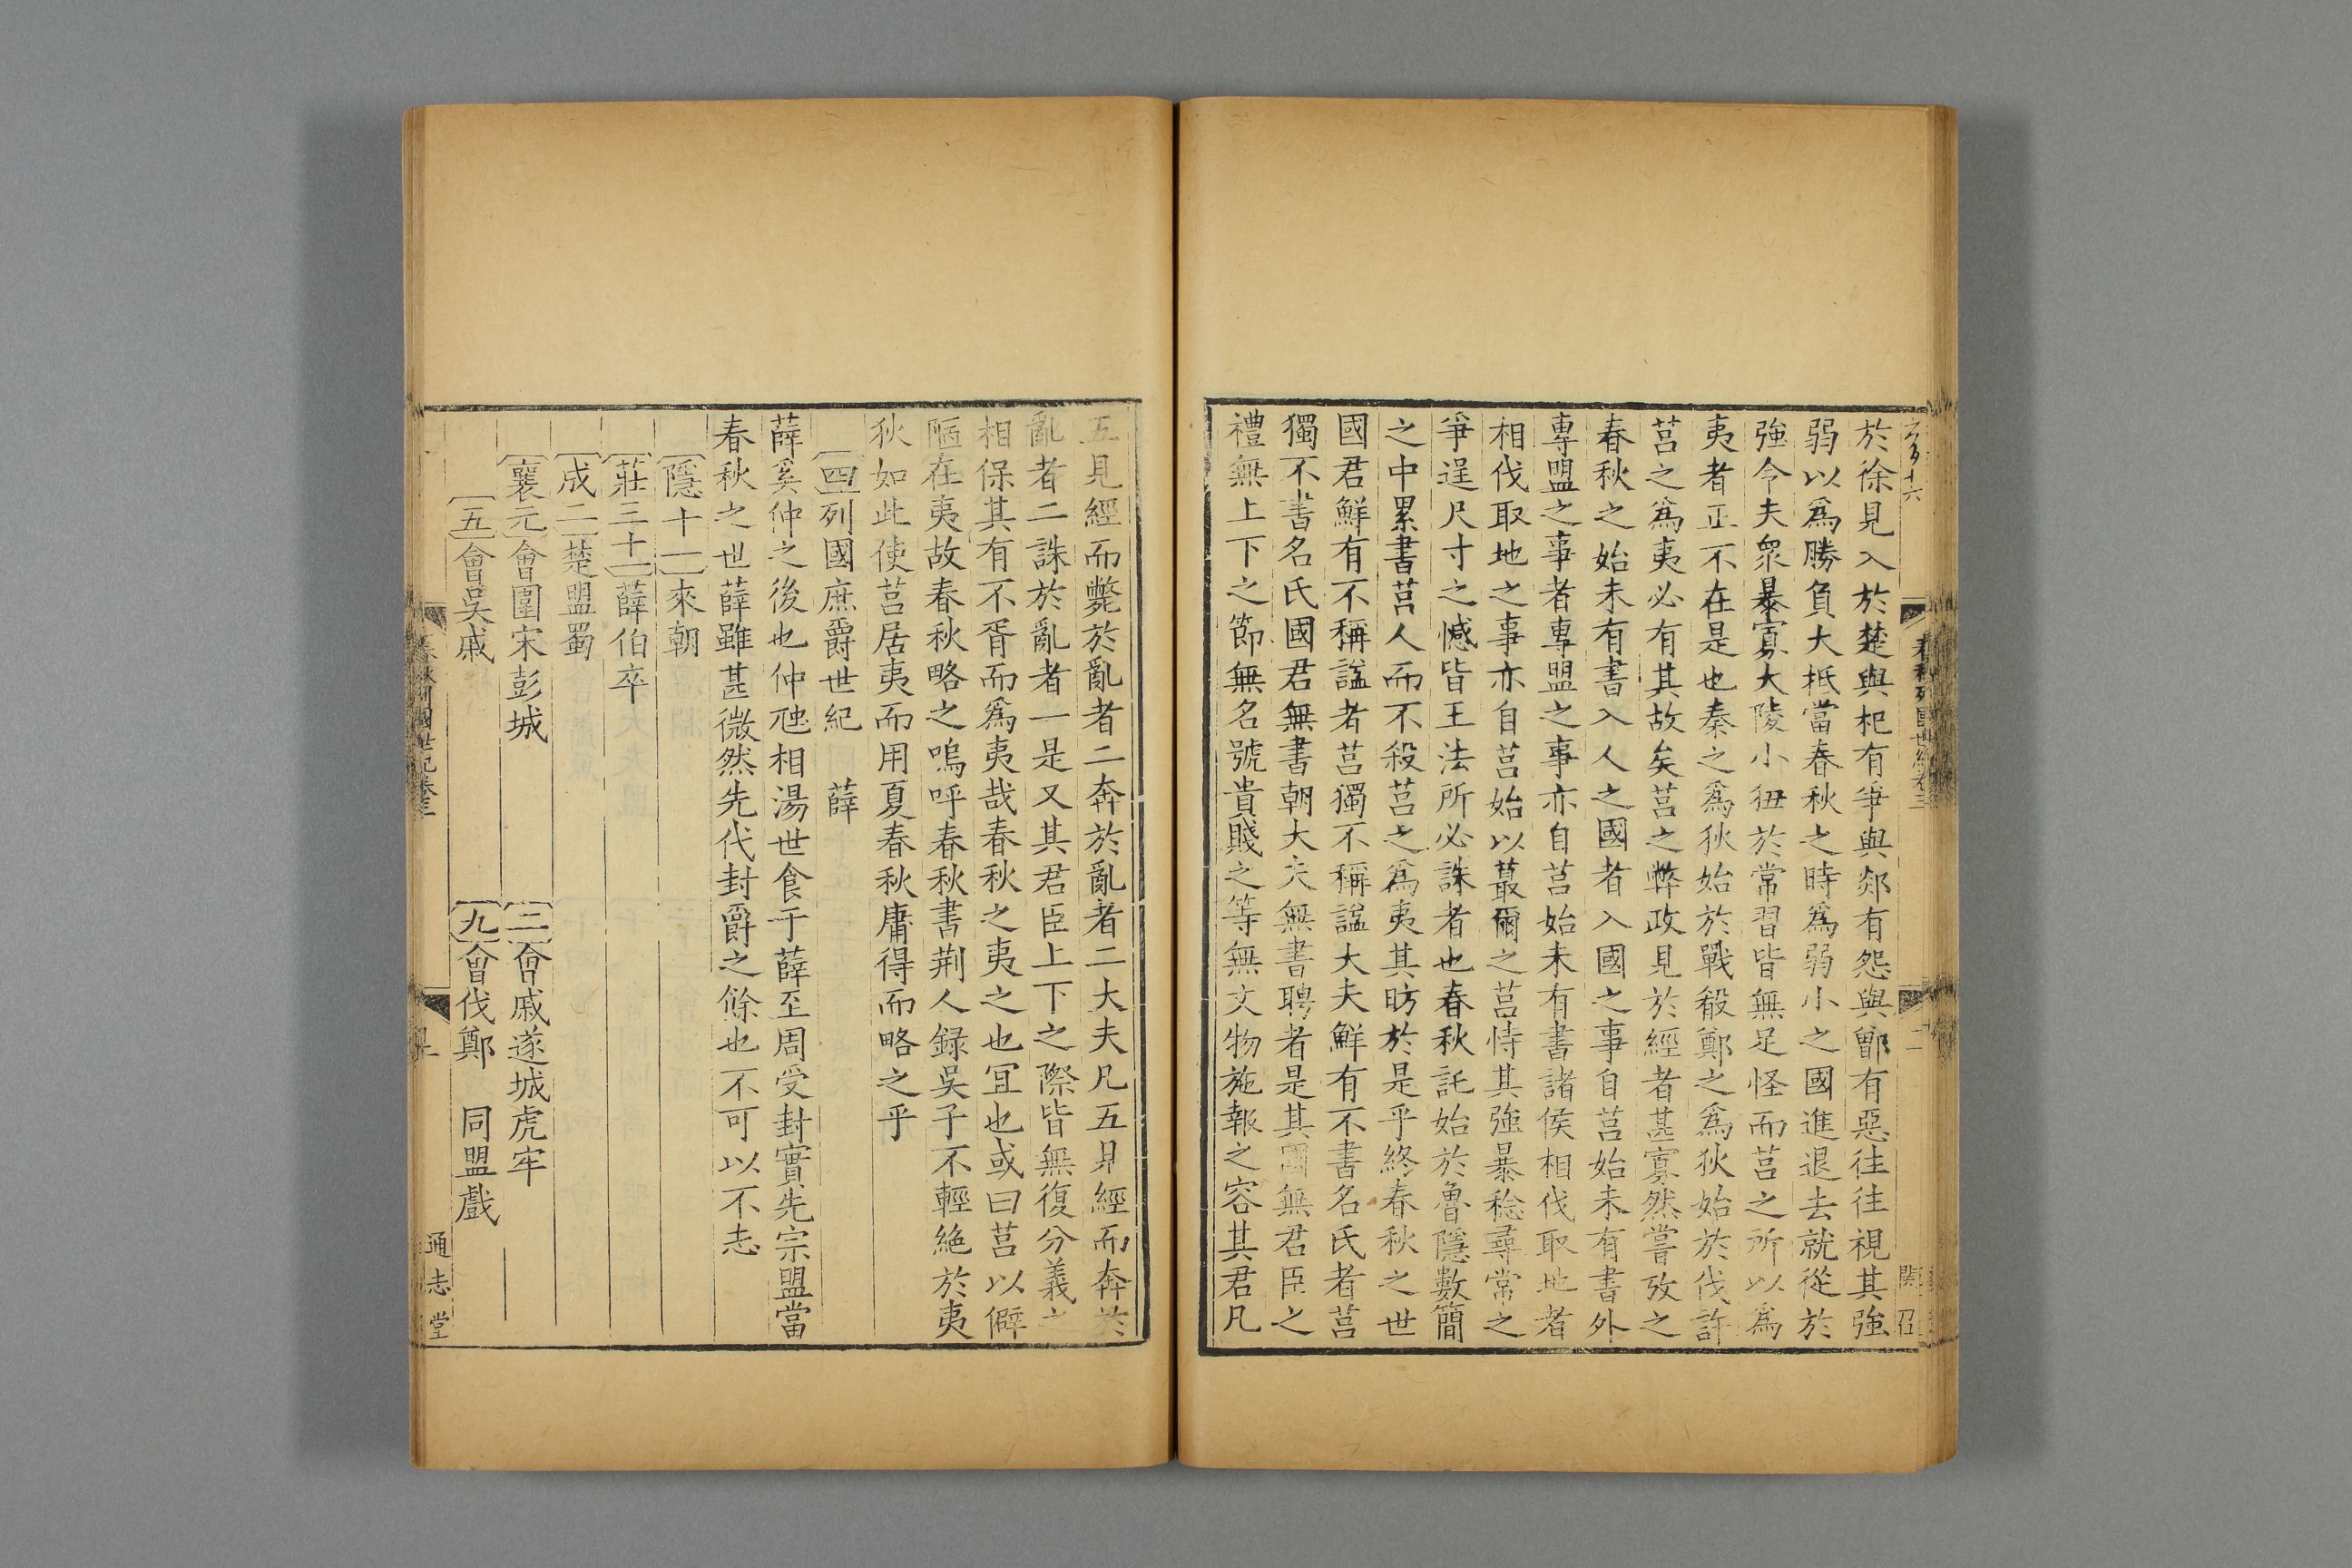 於徐見入於楚與杞有爭與郯有怨與鄫有惡往往視其強
弱以爲勝負大柢當春秋之時爲弱小之國進退去就從於
強令夫衆暴寡大陵小狃於常習皆無足怪而莒之所以爲
夷者正不在是也秦之爲狄始於戰殽鄭之爲狄始於伐許
莒之爲夷必有其故矣莒之弊政見於經者甚寡然嘗攷之
春秋之始未有書入人之國者入國之事自莒始未有書外
專盟之事者專盟之事亦自莒始未有書諸侯相伐取地者
相伐取地之事亦自莒始以蕞爾之莒恃其強暴稔尋常之
爭逞尺寸之憾皆王法所必誅者也春秋託始於魯隱數簡
之中累書莒人而不殺莒之爲夷其昉於是乎終春秋之世
國君鮮有不稱諡者莒獨不稱諡大夫鮮有不書名氏者莒
獨不書名氏國君無書朝大夫無書聘者是其國無君臣之
禮無上下之節無名號貴賤之等無文物施報之容其君凡
五見經而斃於亂者二奔於亂者二大夫凡五見經而奔於
亂者二誅於亂者一是又其君臣上下之際皆無復分義之
相保其有不胥而爲夷哉春秋之夷之也宜也或曰莒以僻
陋在夷故春秋略之嗚呼春秋書荆人録吳子不輕絶於夷
狄如此使莒居夷而用夏春秋庸得而略之乎
四 列國庶爵世紀 薛
薛奚仲之後也仲虺相湯世食于薛至周受封實先宗盟當
春秋之世薛雖甚微然先代封爵之餘也不可以不志
隱十一 來朝
莊三十一 薛伯卒
成二 楚盟蜀
襄元 會圍宋彭城 二 會戚遂城虎牢
五 會吳戚 九 會伐鄭 同盟戲
通志堂